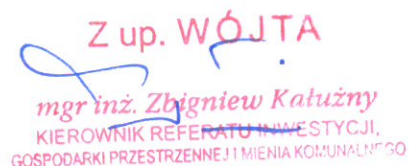 Z up. WÓJTA
mgr inż. Zbigniew Kałużny
KIEROWNIK REFERATU INWESTYCJI,
GOSPODARKI PRZESTRZENNEJ I MIENIA KOMUNALNEGO